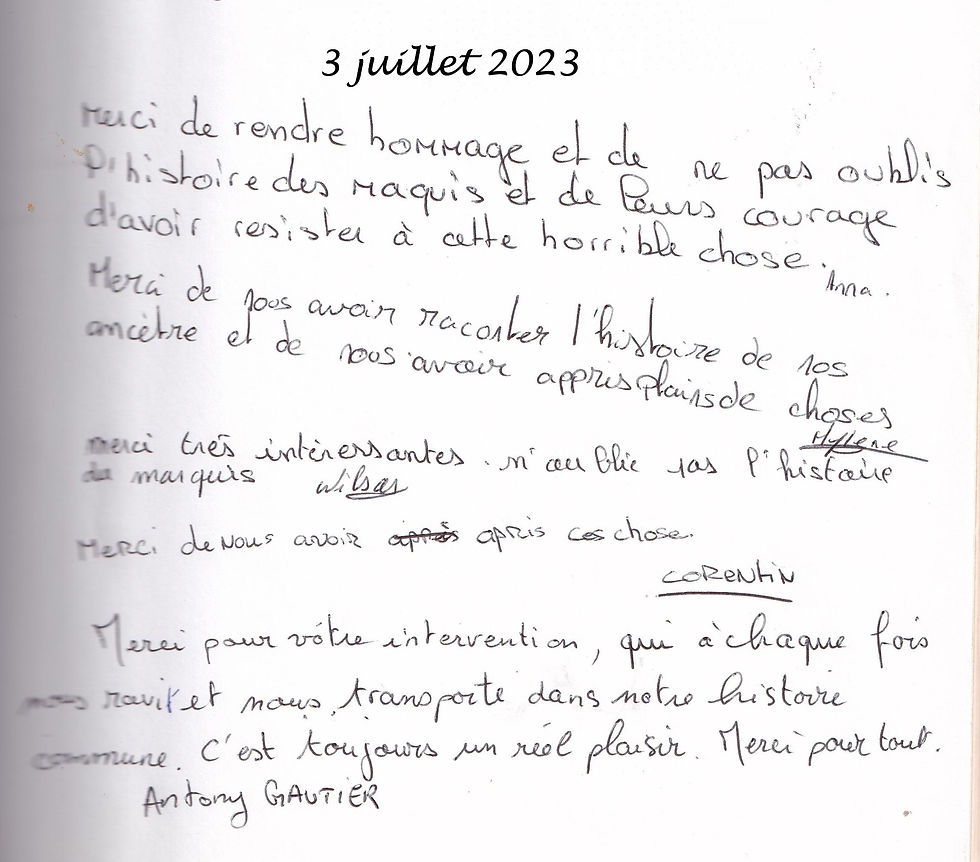 3 juillet 2023
Merci de rendre hommage et de ne pas oublis
l'histoire des maquis et de leurs courage
d'avoir resister à cette horrible chose.
Anna.
Merci de nous avoir raconter l'histoire de nos
ancètre et de nous avoir appris plains de choses
Mylene
merci très intèressantes. n'oublie pas l'histoire
du marquis Wilsas
Merci de nous avoir après apris ces chose.
CORENTIN
Merci pour vôtre intervention, qui à chaque fois
nous ravit et nous transporte dans notre histoire
commune. C'est toujours un réel plaisir. Merci pour tout.
Antony GAUTIER